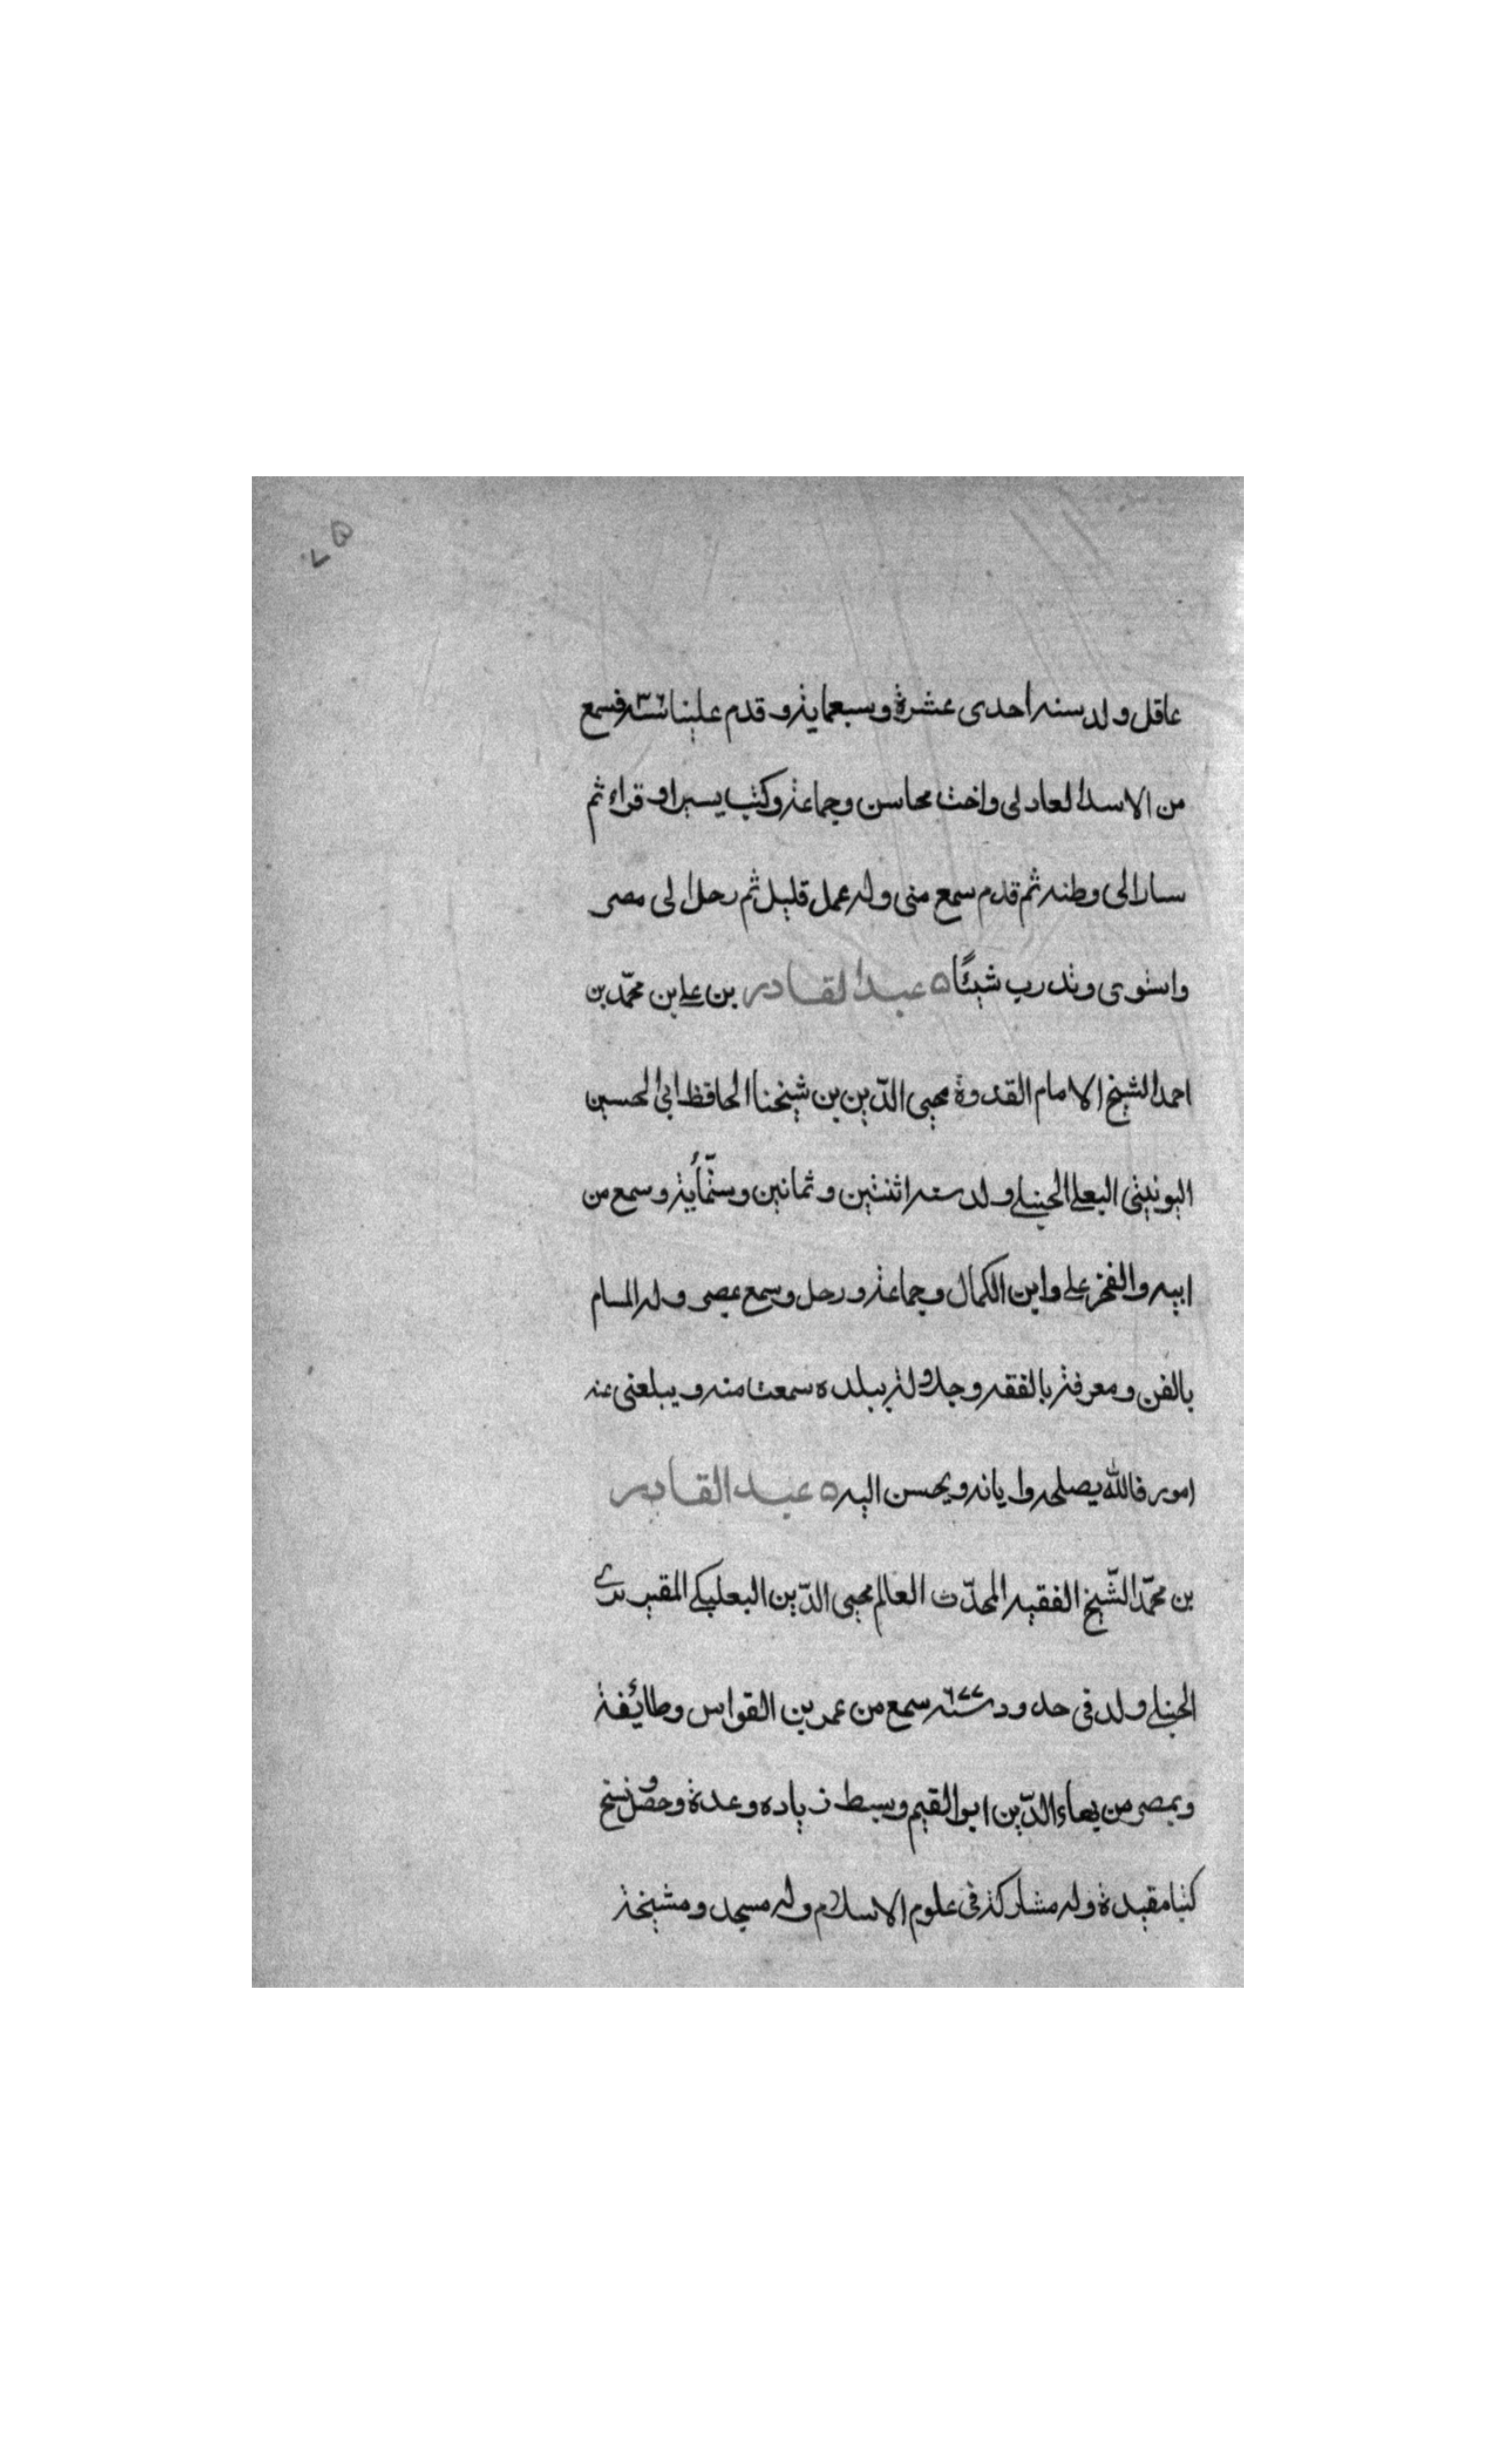 ٥٧
عاقل ولد سنه احدى عشرة وسبعماية وقدم علينا سنه ٣٦ فسمع
من الاسد العادلى واخت محاسن وجماعة وكتب يسيرا وقراء ثم
سار الى وطنه ثم قدم سمع منى وله عمل قليل ثم رحل الى مصر
واستوى وتدرب شيئًا ٥ عبد القادر بن على بن محمّد بن
احمد الشيخ الامام القدوة محيى الدّين بن شيخنا الحافظ ابى الحسين
اليونينى البعلى الحنبلى ولد سنه اثنتين وثمانين وستّمأية وسمع من
ابيه والفخر على وابن الكمال وجماعة ورحل وسمع بمصر وله المام
بالفن ومعرفة بالفقه وجلالة ببلده سمعت منه ويبلغنى عنه
امور فالله يصلحه وايانه ويحسن اليه ٥ عبد القادر
بن محمّد الشّيخ الفقيه المحدّث العالم محيى الدّين البعلبكى المقيريزى
الحنبلى ولد فى حدود سنه ٦٧٧ سمع من عمر بن القواس وطائفة
وبمصر من بهاء الدّين ابو القيم وسبط زياده وعدة وحصّل ونسخ
كتبا مقيدة وله مشاركة فى علوم الاسلام وله مسجد ومشيخة